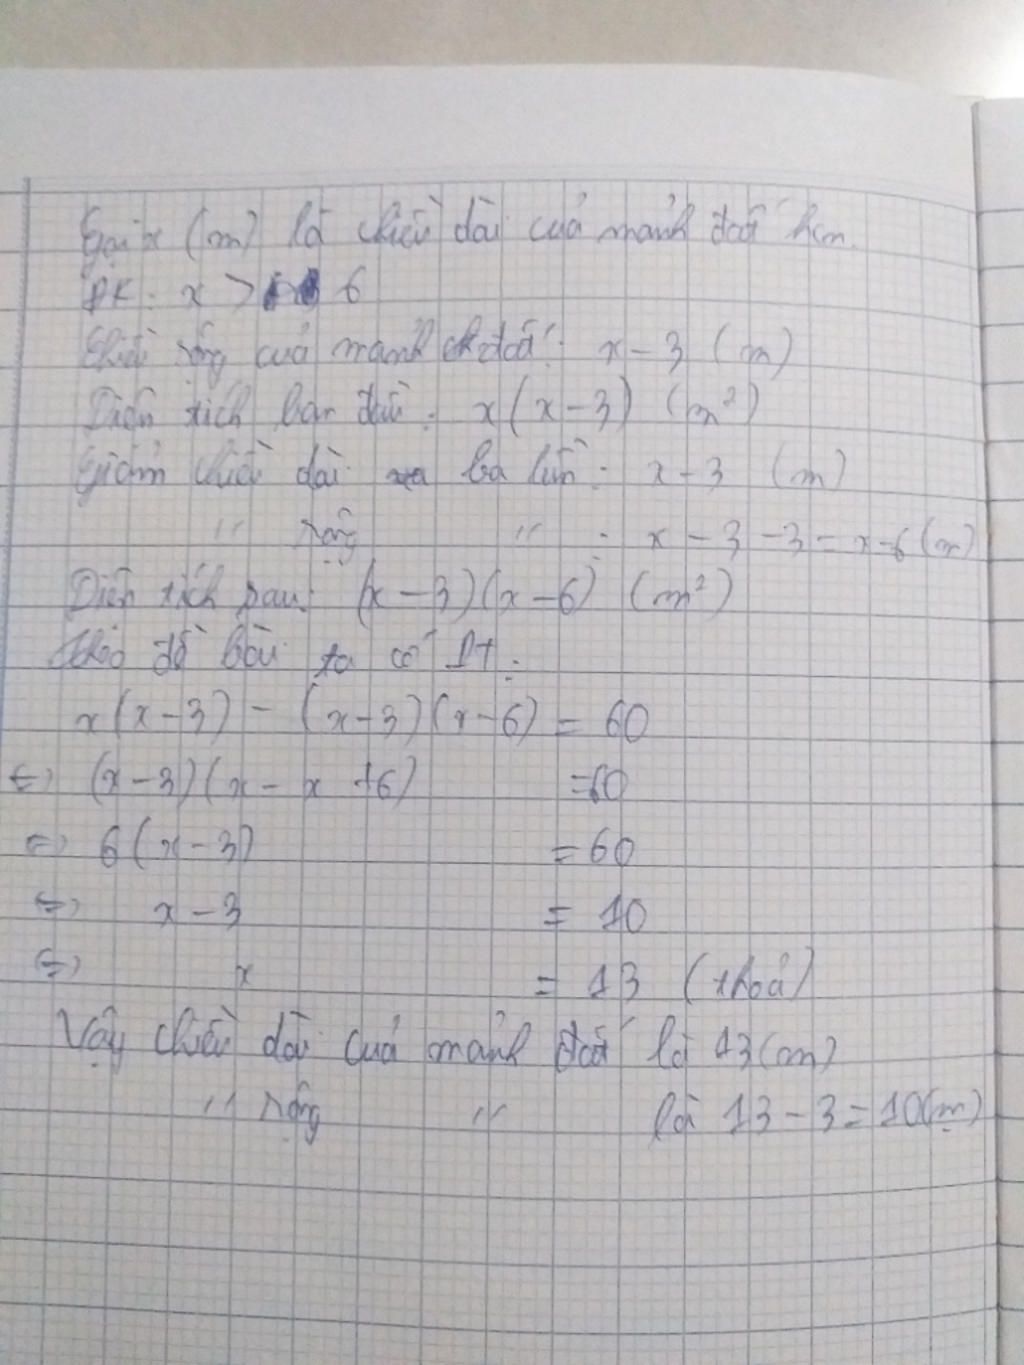 Gọi x (m) là chiều dài của mảnh đất hcn.
ĐK: x > 6
Chiều rộng của mảnh đất: x - 3 (m)
Diện tích ban đầu: x(x-3) (m²)
Giảm chiều dài : x - 3 (m)
" rộng " : x - 3 - 3 = x-6 (m)
Diện tích sau: (x-3)(x-6) (m²)
Theo đề bài ta có Pt:
x(x-3) - (x-3)(x-6) = 60
<=> (x-3)(x - x +6) =60
<=> 6(x-3) = 60
<=> x - 3 = 10
<=> x = 13 (thoả)
Vậy chiều dài của mảnh đất là 13(m)
" rộng " là 13 - 3 = 10(m)